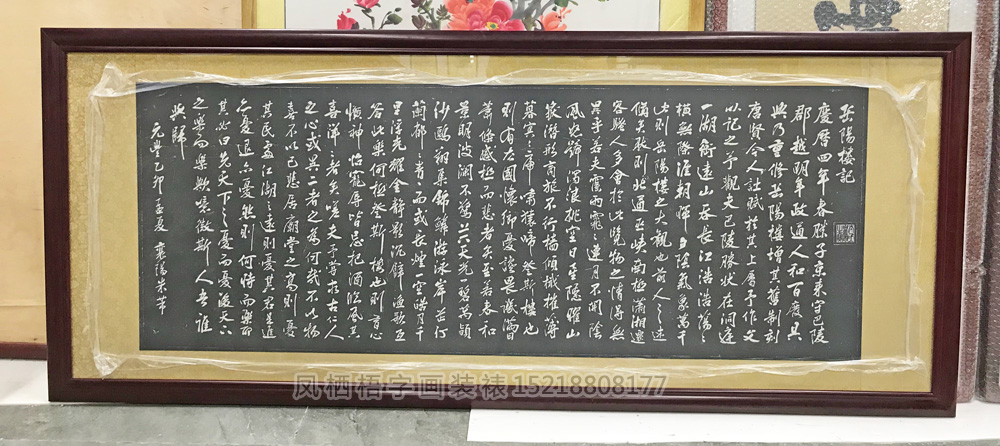 岳陽樓記
慶曆四年春滕子京東守巴陵
郡越明年政通人和百廢具
興乃重修岳陽樓增其舊制刻
唐賢今人詩賦於其上屬予作文
以記之予觀夫巴陵勝狀在洞庭
一湖銜遠山吞長江浩浩蕩蕩
橫無際涯朝暉夕陰氣象萬千
此則岳陽樓之大觀也前人之述
備矣然則北通巫峽南極瀟湘遷
客騷人多會於此覽物之情得無
異乎若夫霪雨霏霏連月不開陰
風怒號濁浪排空日星隱耀山
岳潛形商旅不行檣傾楫摧薄
暮冥冥虎嘯猿啼登斯樓也
則有去國懷鄉憂讒畏譏滿目
蕭條感極而悲者矣至若春和
景明波瀾不驚上下天光一碧萬頃
沙鷗翔集錦鱗游泳岸芷汀
蘭郁郁青青而或長煙一空皓月千
里浮光耀金靜影沉璧漁歌互
答此樂何極登斯樓也則有心
曠神怡寵辱皆忘把酒臨風其
喜洋洋者矣嗟夫予嘗求古仁人
之心或異二者之為何哉不以物
喜不以己悲居廟堂之高則憂
其民處江湖之遠則憂其君是進
亦憂退亦憂然則何時而樂耶
其必曰先天下之憂而憂後天下
之樂而樂歟噫微斯人吾誰
與歸
元豐乙卯孟夏 襄陽米芾
凤栖梧字画装裱15218808177